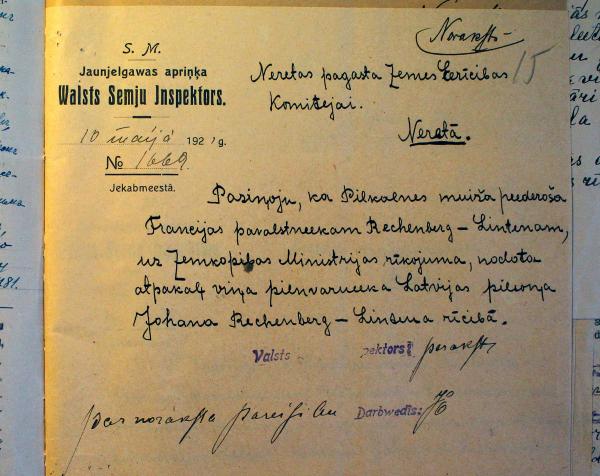 Noraksts
S. M.
Jaunjelgawas apriņķa
Walsts Semju Inspektors.
10 maijā 1921 g.
№ 1669
Jekabmeestā.
Neretas pagasta Zemes Ierīcibas
Komitejai.
15
Neretā.
Pasiņoju, ka Pilkalnes muiža peederoša
Francijas pavalstneekam Rechenberg – Lintenam,
uz Zemkopibas Ministrijas rīkojuma, nodota
atpakaļ viņa pilnvarneeka Latvijas pilsoņa
Johana Rechenberg – Lintena rīcībā.
Valsts pektors: paraksts
par noraksta pareisibu Darbwedis: